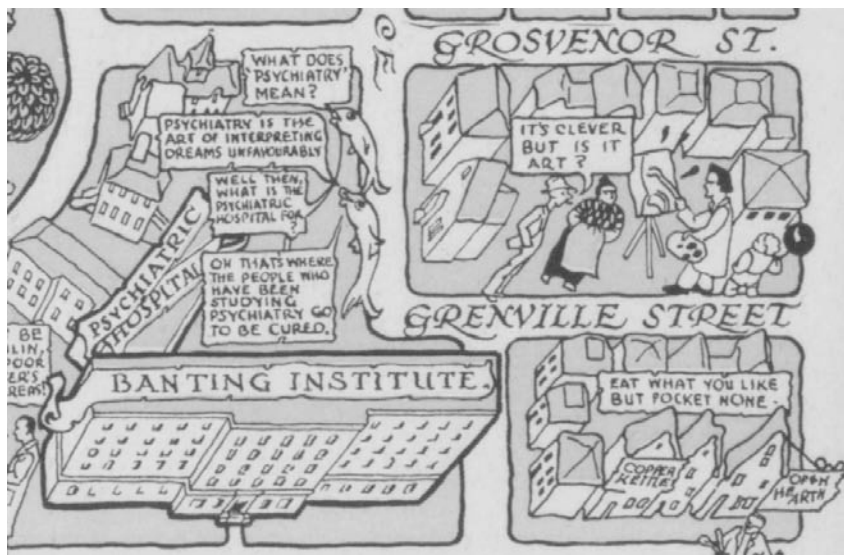 GROSVENOR ST.
WHAT DOES
'PSYCHIATRY'
MEAN?
PSYCHIATRY IS THE
ART OF INTERPRETING
DREAMS UNFAVOURABLY
WELL THEN,
WHAT IS THE
PSYCHIATRIC
HOSPITAL FOR
?
OH THAT'S WHERE
THE PEOPLE WHO
HAVE BEEN
STUDYING
PSYCHIATRY GO
TO BE CURED.
PSYCHIATRIC
HOSPITAL
IT'S CLEVER
BUT IS IT
ART?
GRENVILLE STREET
BE
LIN,
OOR
ER'S
REAS!
BANTING INSTITUTE.
EAT WHAT YOU LIKE
BUT POCKET NONE.
COPPER
KETTLE
OPEN
HEARTH